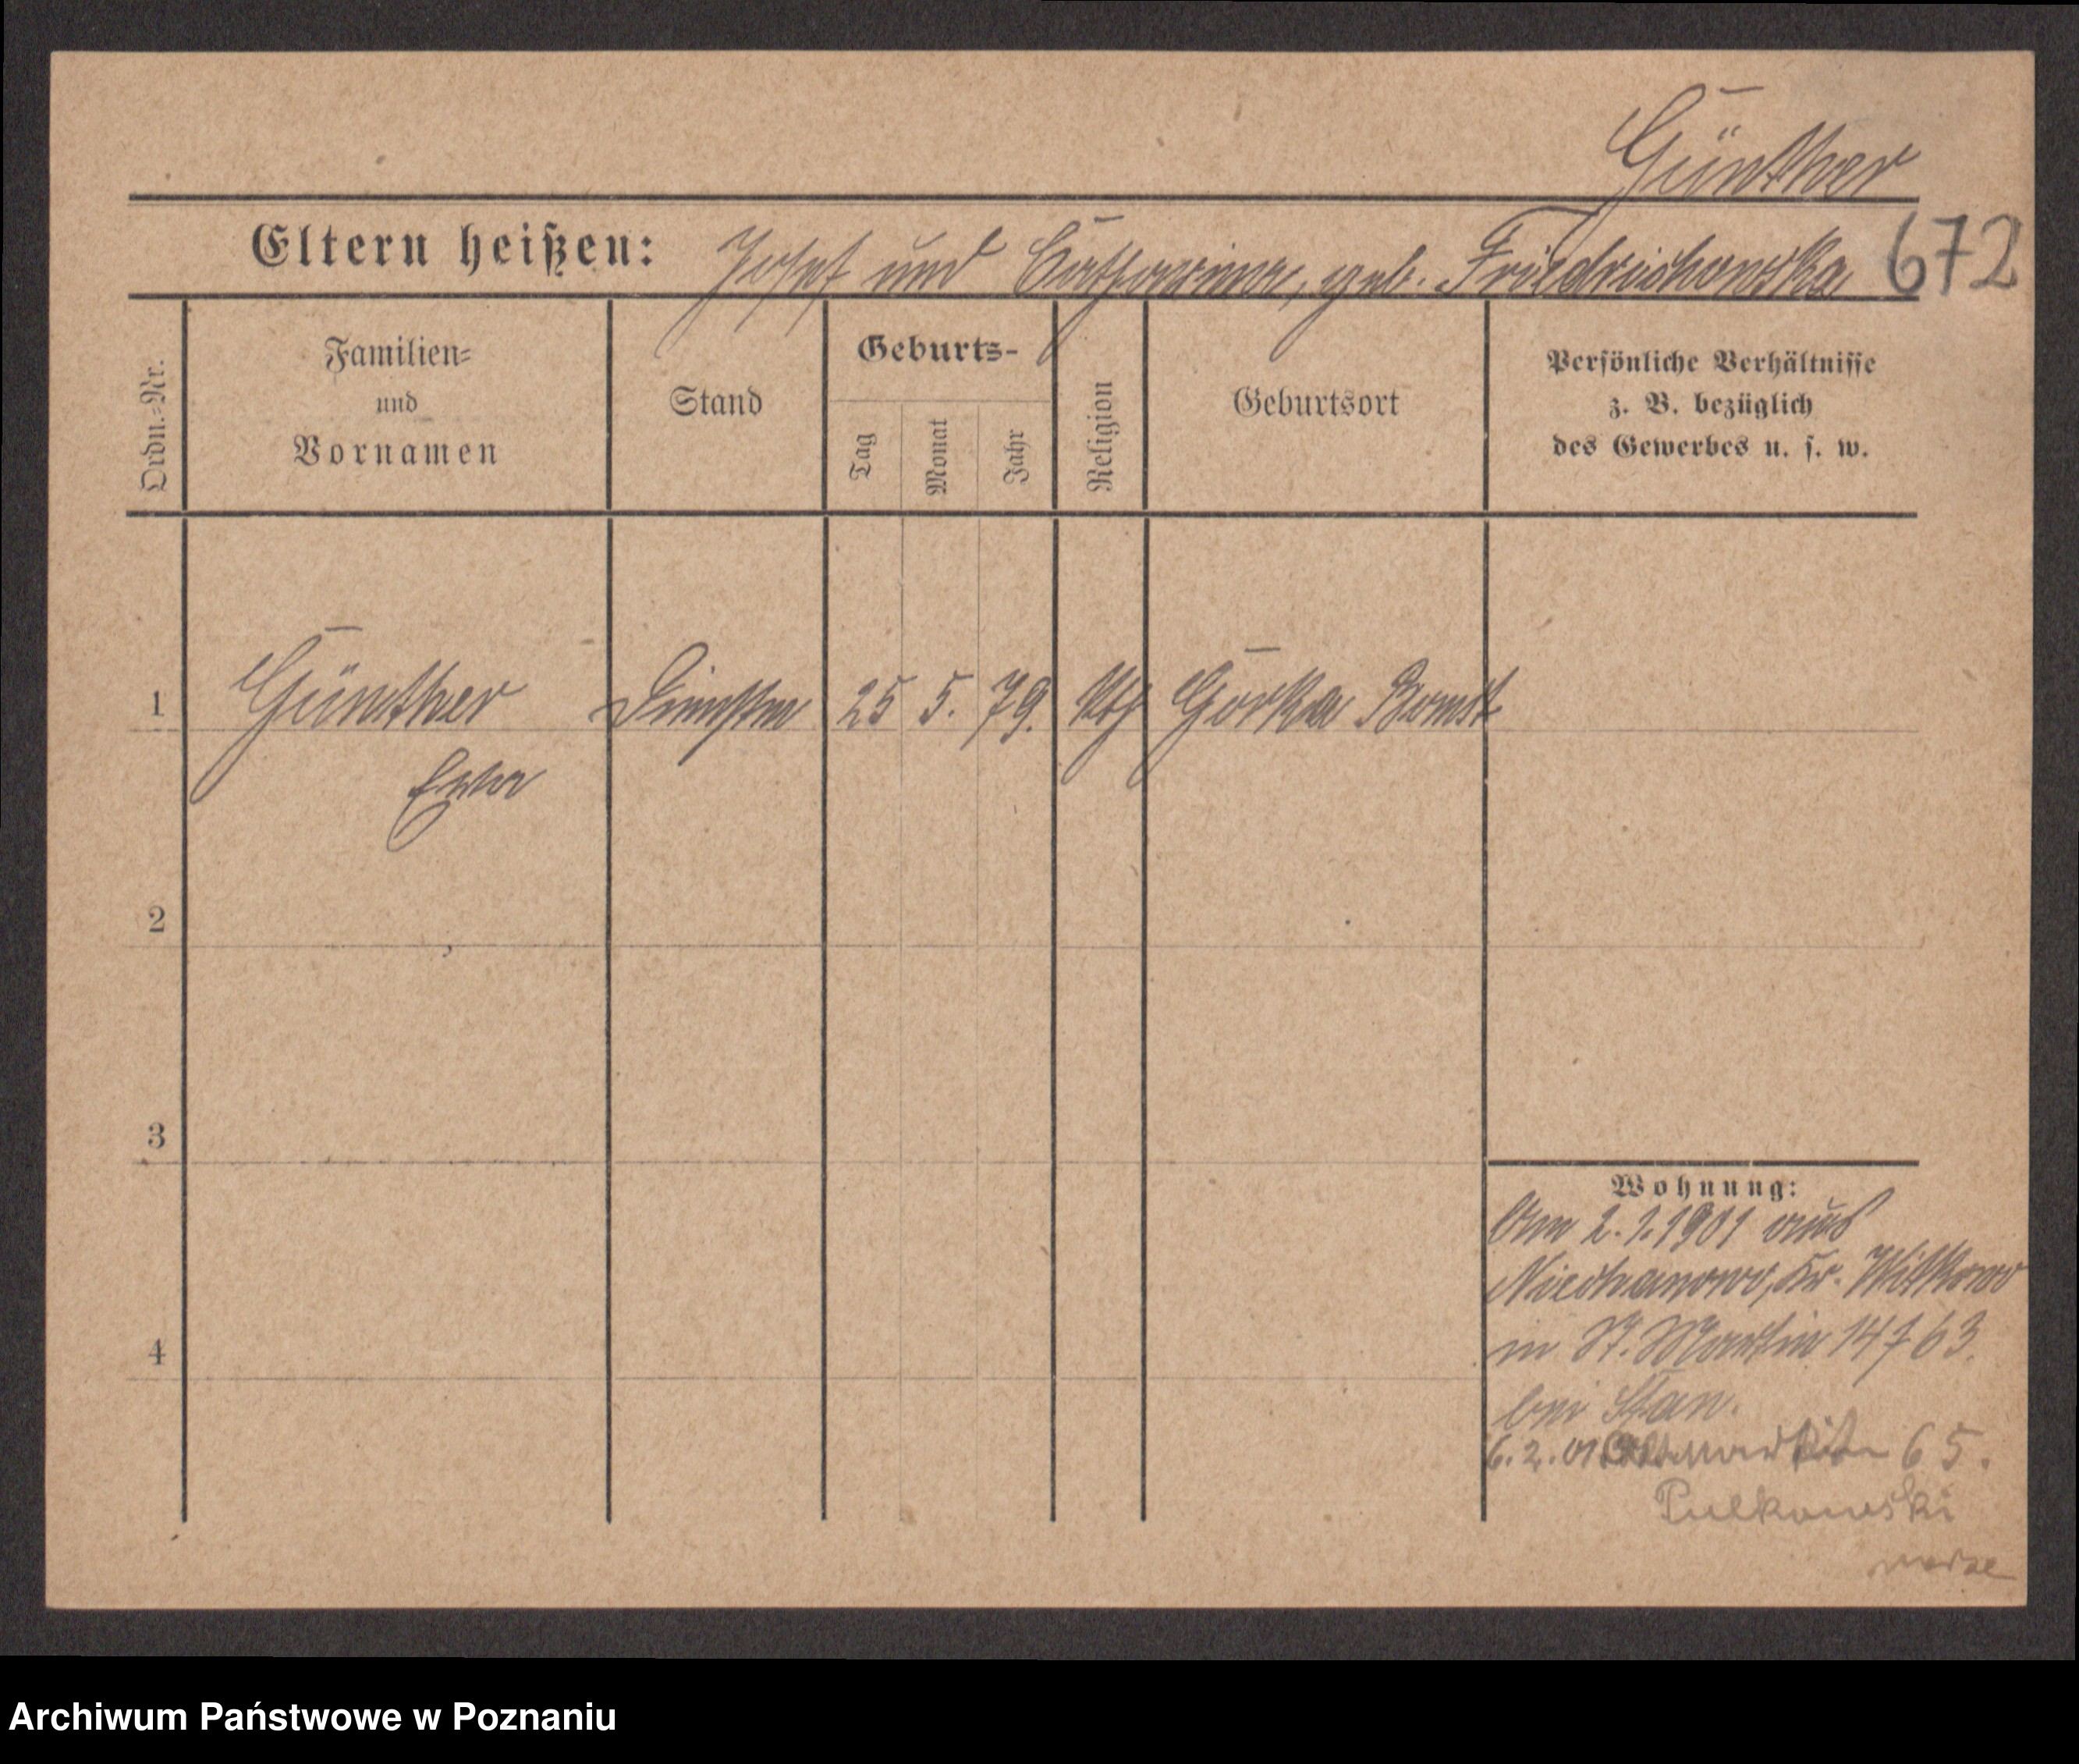 Günther
Eltern heißen: Josef und Catharina, geb. Friedrichowska 672
Ordn.=Nr.
Familien=
und
Vornamen
Stand
Geburts-
Tag
Monat
Jahr
Religion
Geburtsort
Persönliche Verhältnisse
z. B. bezüglich
des Gewerbes u. s. w.
1 Günther 25 5. 79. kth Gorka Bomst
2
3
4
Wohnung:
Am 2.1.1901 aus
Niechanowo, Kr. Witkowo
in St. Martin 14763.
bei Stan.
6.2.01 65.
Pulkowski
Archiwum Państwowe w Poznaniu